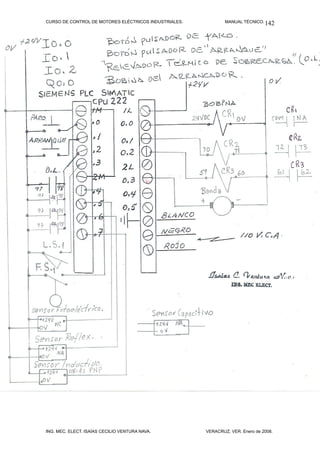 CURSO DE CONTROL DE MOTORES ELÉCTRICOS INDUSTRIALES.
MANUAL TÉCNICO. 142
+24V
0V
I0.0 BOTON PULSADOR DE PARO.
I0.1 BOTON PULSADOR DE "ARRANQUE"
I0.2 "RELEVADOR TERMICO DE SOBRECARGA." (O.L.
Q0.0 BOBINA DEL ARRANCADOR.
SIEMENS PLC SIMATIC
CPU 222
+24V
0V
BOBINA
1M 1L
24VDC CR1 0V
CR1
COM NA
PARO
.0 0.0
ARRANQUE
.1 0.1
.2 0.2
CR2
CR2
.3 2L
O.L.
2M 0.3
CR3
CR3
61 62
.4 0.4
Banda
.5 0.5
- +
.6
.7
BLANCO
NEGRO
ROJO
110 V.C.A.
L.S.1
F.S.1
Isaias C. Ventura Nava.
ING. MEC ELECT.
Sensor Fotoeléctrico.
+24V NC
0V
Sensor Capacitivo
+24V NA
0V
Sensor Reflex.
+24V NA
0V
Sensor Inductivo
+24V PNP
0V
ING. MEC. ELECT. ISAIAS CECILIO VENTURA NAVA.
VERACRUZ. VER. Enero de 2008.